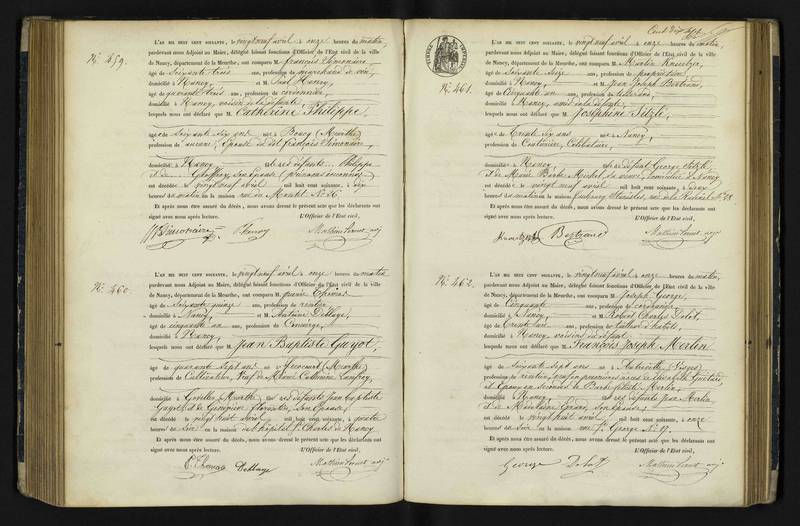 N.° 459.
L'AN MIL HUIT CENT SOIXANTE, le vingt neuf avril à onze heures du matin,
pardevant nous Adjoint au Maire, délégué faisant fonctions d'Officier de l'Etat civil de la ville
de Nancy, département de la Meurthe, ont comparu M. François Simonaire,
âgé de soixante trois ans, profession de marchand de vin,
domicilié à Nancy, et M. Henry,
âgé de quarante trois ans, profession de cordonnier,
domicilié à Nancy, voisin de la défunte,
lesquels nous ont déclaré que M. Catherine Philippe,
âgé de soixante six ans née à (Meurthe)
profession de épouse du dit François Simonaire,
domiciliée à Nancy défunts Philippe
et de son épouse
est décédée le vingt neuf avril mil huit cent soixante, à six
heures du matin en la maison rue du N.° 26.
Et après nous être assuré du décès, nous avons dressé le présent acte que les déclarants ont
signé avec nous après lecture. L'Officier de l'Etat civil,
Simonaire Henry Mathieu adj
N.° 460.
L'AN MIL HUIT CENT SOIXANTE, le vingt neuf avril à onze heures du matin
pardevant nous Adjoint au Maire, délégué faisant fonctions d'Officier de l'Etat civil de la ville
de Nancy, département de la Meurthe, ont comparu M. Thomas
âgé de soixante quinze ans, profession de rentier,
domicilié à Nancy, et M. Antoine Deblaye,
âgé de cinquante un ans, profession de Concierge,
domicilié à Nancy,
lesquels nous ont déclaré que M. Jean Baptiste Guyot,
âgé de quarante sept ans né à (Meurthe)
profession de Cultivateur, Veuf de Catherine
domicilié à (Meurthe) défunts Jean Baptiste
Guyot et de son épouse,
est décédé le vingt huit avril mil huit cent soixante, à quatre
heures du soir en la maison de l'hôpital S.t Charles de Nancy
Et après nous être assuré du décès, nous avons dressé le présent acte que les déclarants ont
signé avec nous après lecture. L'Officier de l'Etat civil,
Thomas Deblaye Mathieu adj
N.° 461.
L'AN MIL HUIT CENT SOIXANTE, le vingt neuf avril à onze heures du matin,
pardevant nous Adjoint au Maire, délégué faisant fonctions d'Officier de l'Etat civil de la ville
de Nancy, département de la Meurthe, ont comparu M. Martin
âgé de soixante seize ans, profession de propriétaire
domicilié à Nancy, et M. Jean Joseph Bertrand,
âgé de Cinquante un ans, profession de tisserand,
domicilié à Nancy, amis de la défunte,
lesquels nous ont déclaré que M. Joséphine Sitzle,
âgé de Trente six ans née à Nancy,
profession de Couturière, Célibataire,
domiciliée à Nancy, défunt George Sitzle
et de Marie Barbe Michel, sa veuve, domiciliée à Nancy
est décédée le vingt neuf avril mil huit cent soixante, à deux
heures du matin en la maison faubourg Stanislas, N.° 28.
Et après nous être assuré du décès, nous avons dressé le présent acte que les déclarants ont
signé avec nous après lecture. L'Officier de l'Etat civil,
Bertrand Mathieu adj
N.° 462.
L'AN MIL HUIT CENT SOIXANTE, le vingt neuf avril à onze heures du matin,
pardevant nous Adjoint au Maire, délégué faisant fonctions d'Officier de l'Etat civil de la ville
de Nancy, département de la Meurthe, ont comparu M. Joseph George,
âgé de Cinquante ans, profession de cordonnier
domicilié à Nancy, et M. Robert Charles Dolot,
âgé de Trente huit ans, profession de tailleur d'habits,
domicilié à Nancy, voisins du défunt,
lesquels nous ont déclaré que M. François Joseph Merlin,
âgé de soixante sept ans né à (Vosges)
profession de rentier, veuf en premières noces de Elisabeth
et époux en secondes de Barbe
domicilié à Nancy, défunts Jean Merlin
et de Madelaine son épouse,
est décédé le vingt huit avril mil huit cent soixante, à onze
heures du soir en la maison rue S.t George N.° 17.
Et après nous être assuré du décès, nous avons dressé le présent acte que les déclarants ont
signé avec nous après lecture. L'Officier de l'Etat civil,
George Dolot Mathieu adj